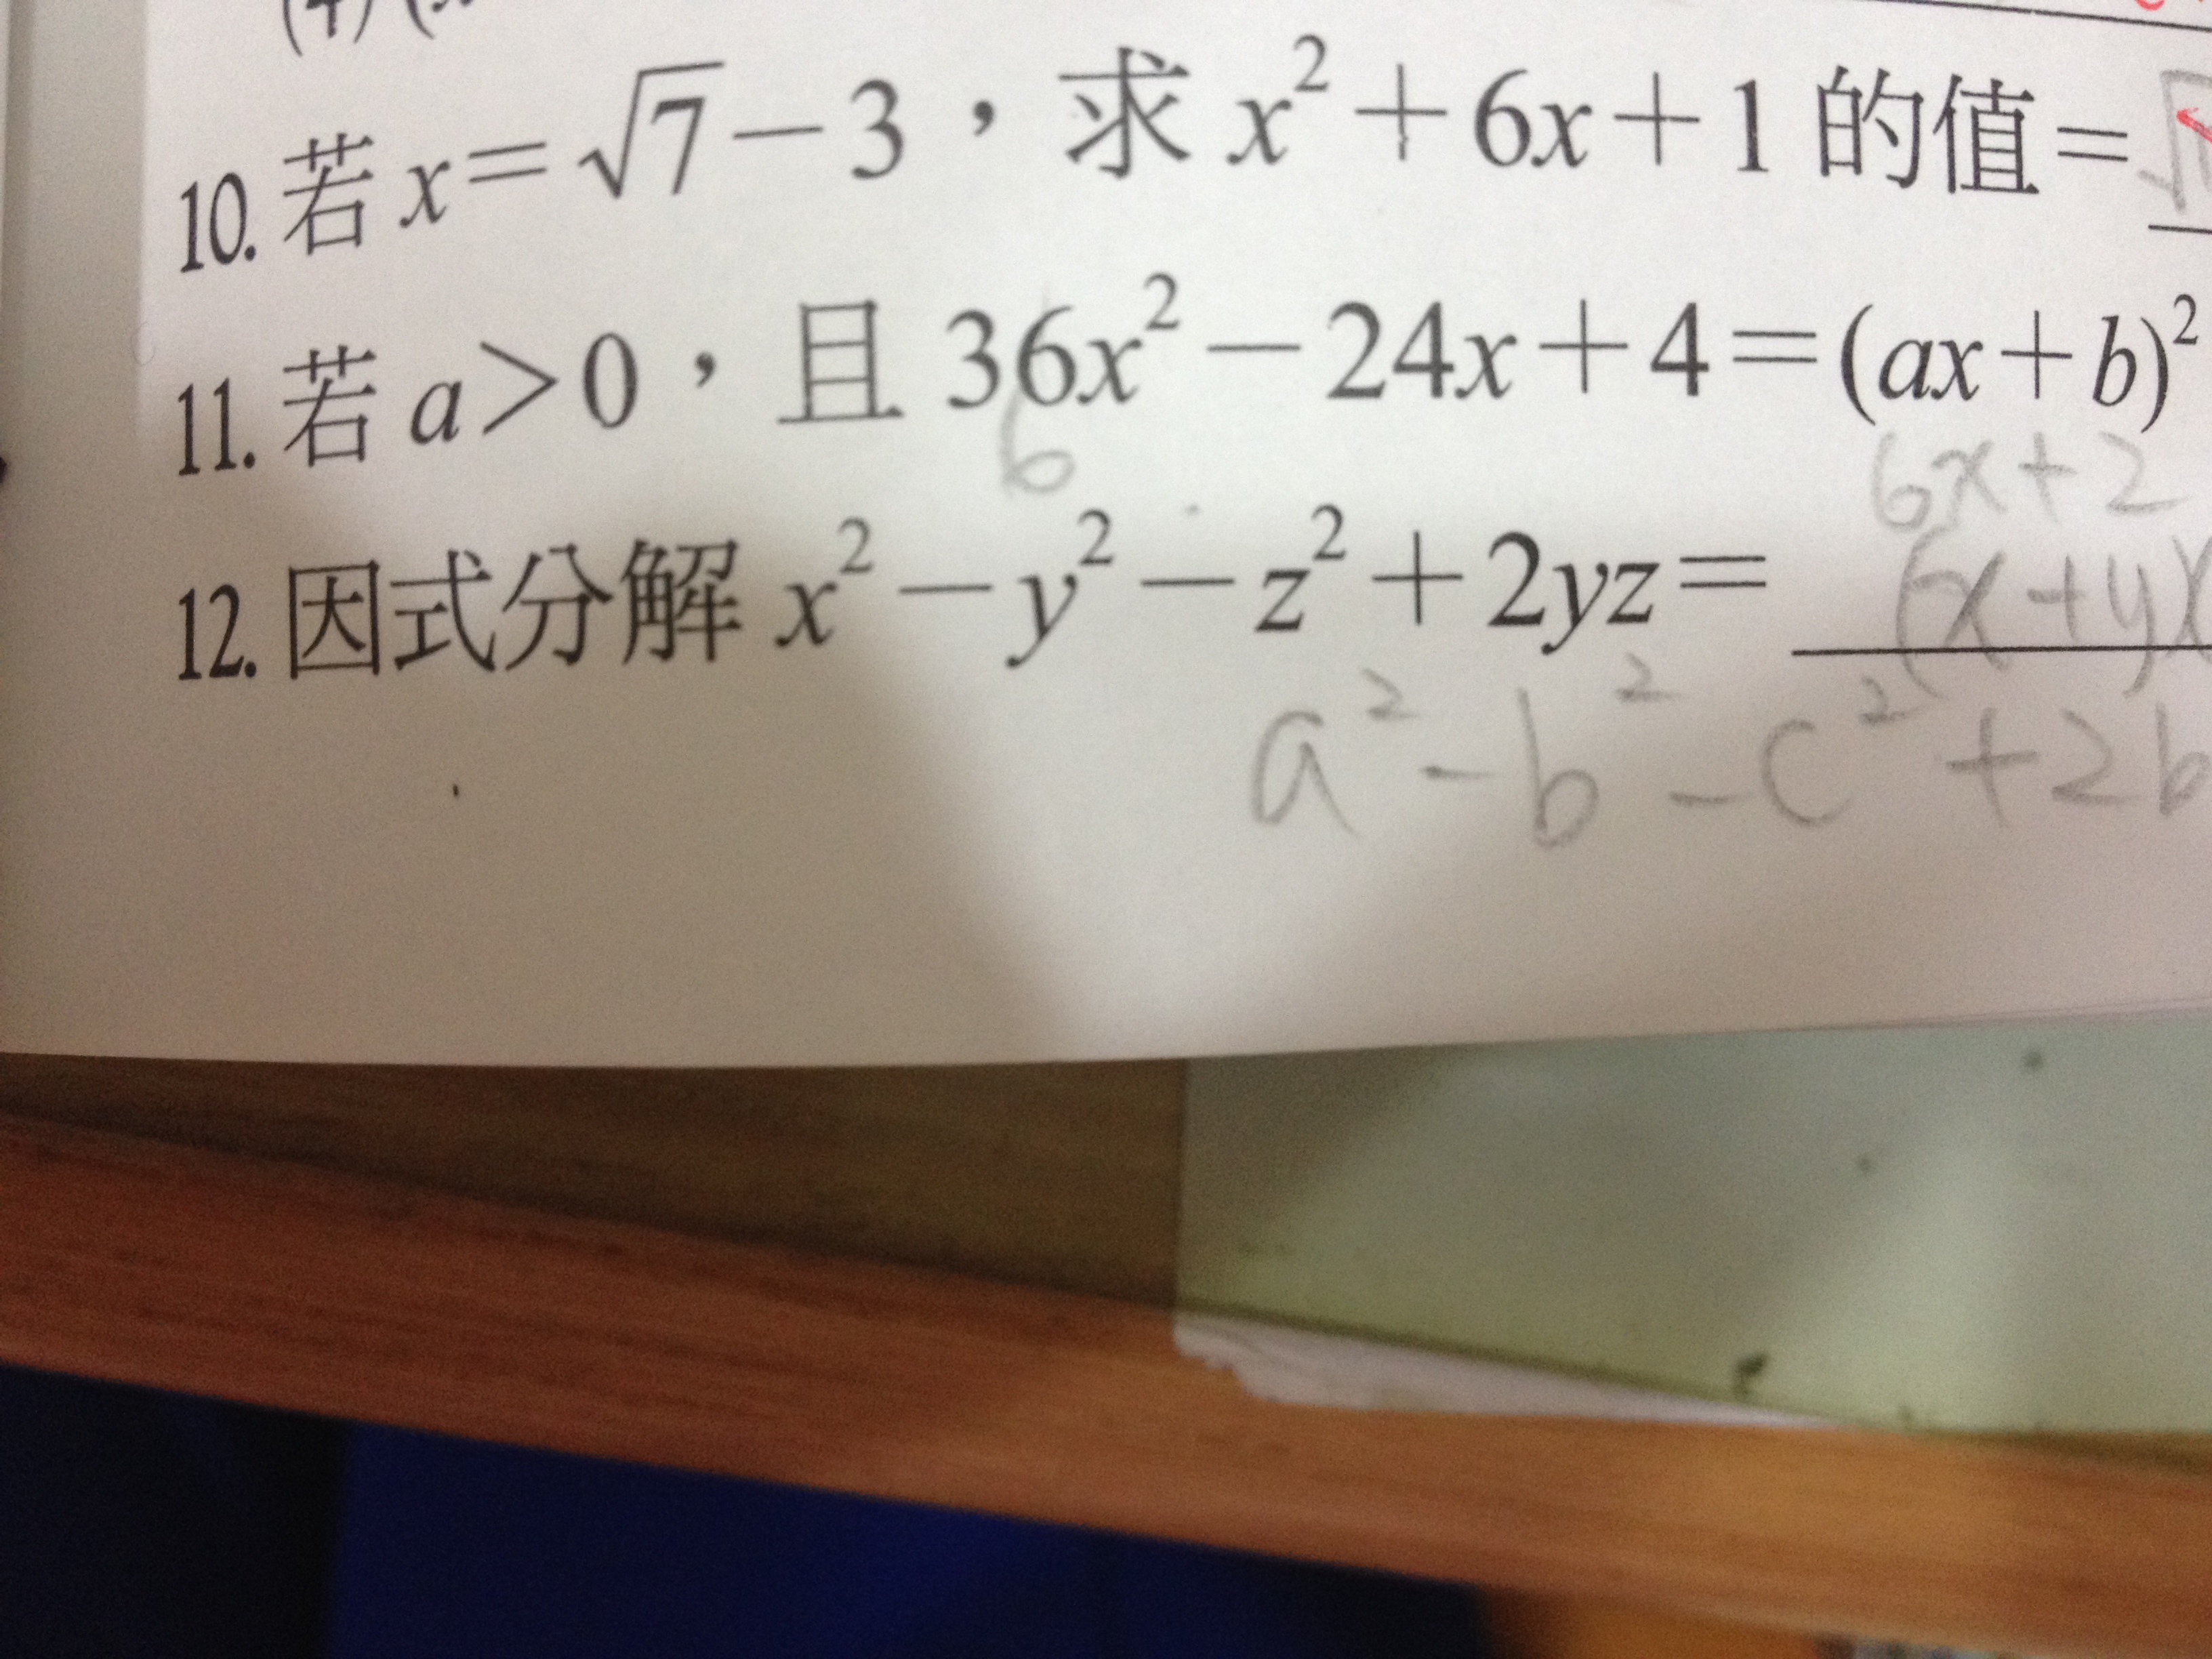 (4) (
10. 若 x = √7 − 3，求 x² + 6x + 1 的值 =
11. 若 a > 0，且 36x² − 24x + 4 = (ax + b)²
6
6x + 2
12. 因式分解 x² − y² − z² + 2yz = (x + y)(
a² − b² − c² + 2b